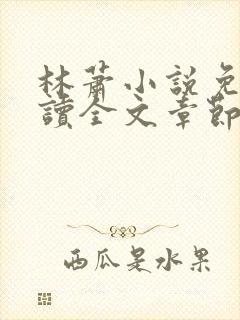 林蕭小說免
讀全文章節
西瓜是水果